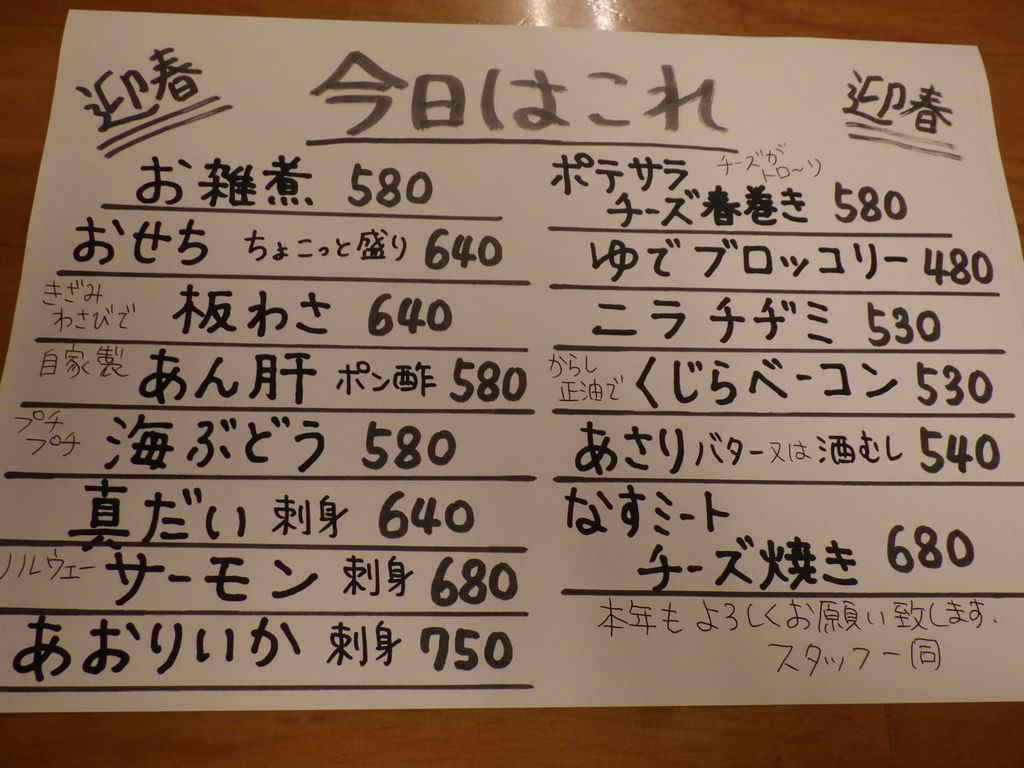 迎春
今日はこれ
迎春
お雑煮 580
おせち ちょこっと盛り 640
きざみ
わさびで 板わさ 640
自家製 あん肝 ポン酢 580
プチ
プチ 海ぶどう 580
真だい 刺身 640
ノルウェー サーモン 刺身 680
あおりいか 刺身 750
ポテサラ チーズが
トロ〜リ
チーズ春巻き 580
ゆでブロッコリー 480
ニラチヂミ 530
からし
正油で くじらベーコン 530
あさりバター又は酒むし 540
なすミート
チーズ焼き 680
本年もよろしくお願い致します.
スタッフ一同